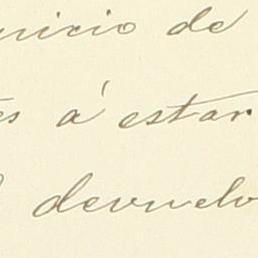 inicio de
es á estar
devuelv